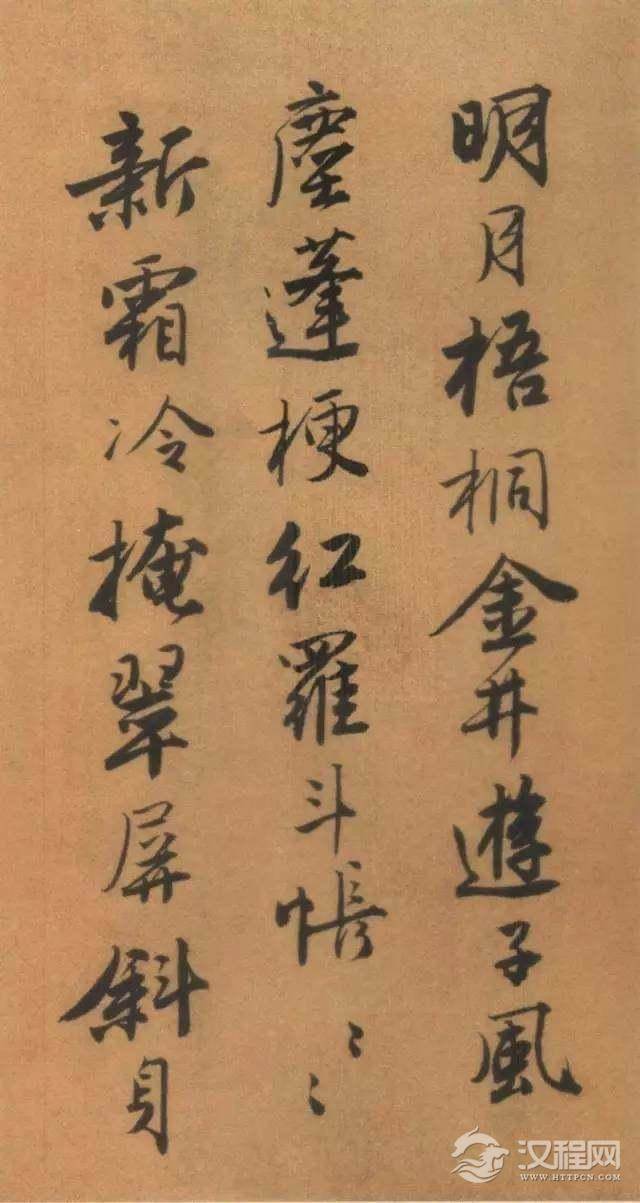 明月梧桐金井遊子風
塵蓬梗紅羅斗帳〻〻
新霜冷掩翠屏斜月
汉程网
WWW.HTTPCN.COM